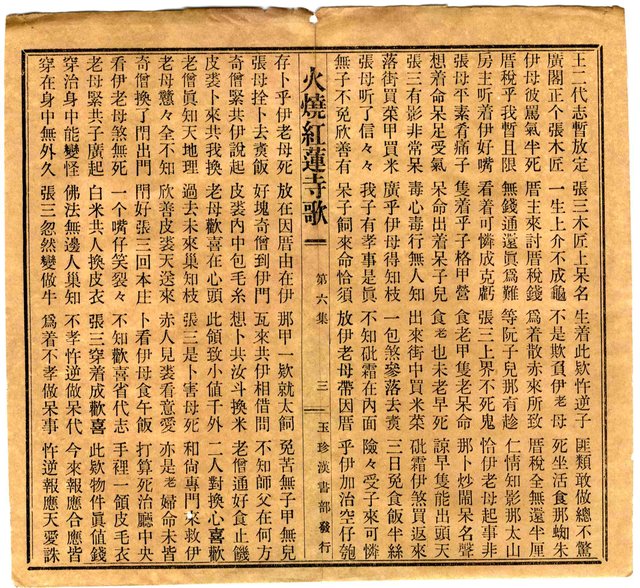 王二代志暫放定 張三木匠上呆名 生着此欵忤逆子 匪類敢做總不驚
廣閣正个張木匠 一生上介不成龜 不是欺負伊老母 死坐活食那蜘蛛
伊母彼罵氣半死 厝主來討厝稅錢 爲着散赤來所致 厝稅全無還半厘
厝稅乎我暫且限 無錢通還眞爲難 等阮子兒那有趁 仁情知影那太山
房主听着伊好嘴 看着可憐成克虧 張三上界不死鬼 恰伊老母起事非
張母平素看痛子 隻着乎子格甲營 食老甲隻老呆命 那卜炒鬧呆名聲
想着命呆足受氣 呆命出着呆子兒 食老也未老早死 諒早隻能出頭天
張三有影非常呆 毒心毒行無人知 出來街中買米菜 砒霜伊煞買返來
落街買菜甲買米 廣乎伊母得知枝 一包煞參落去煑 三日免食飯半絲
張母听了信々々 我子有孝事是眞 不知砒霜在內面 險々受子來可憐
無子不免欣善有 呆子飼來命恰須 放伊老母帶因厝 乎伊加治空仔匏
火燒紅蓮寺歌 第六集 三 玉珍漢書部發行
存卜乎伊老母死 放在因厝由在伊 那甲一欵就太飼 免苦無子甲無兒
張母拴卜去煑飯 好塊奇僧到伊門 瓦來共伊相借問 不知師父在何方
奇僧緊共伊說起 皮裘內中包毛糸 想卜共汝斗換米 老僧通好食止饑
皮裘卜來共我換 老母歡喜在心頭 此領致小値千外 二人對換心喜歡
老僧眞知天地理 過去未來巢知枝 張三是卜害母死 和尚專門來救伊
老母戇々全不知 欣善皮裘天送來 赤人見裘看意愛 亦是老婦命未皆
奇僧換了閂出門 閂好張三回本庄 卜看伊母食午飯 打算死治廳中央
看伊老母煞無死 一个嘴仔笑裂々 不知歡喜省代志 手裡一領皮毛衣
老母緊共子廣起 白米共人換皮衣 張三穿着成歡喜 此欵物件眞値錢
穿治身中能變怪 佛法無邊人巢知 不孝忤逆做呆代 今來報應合應皆
穿在身中無外久 張三忽然變做牛 爲着不孝做呆事 忤逆報應天愛誅